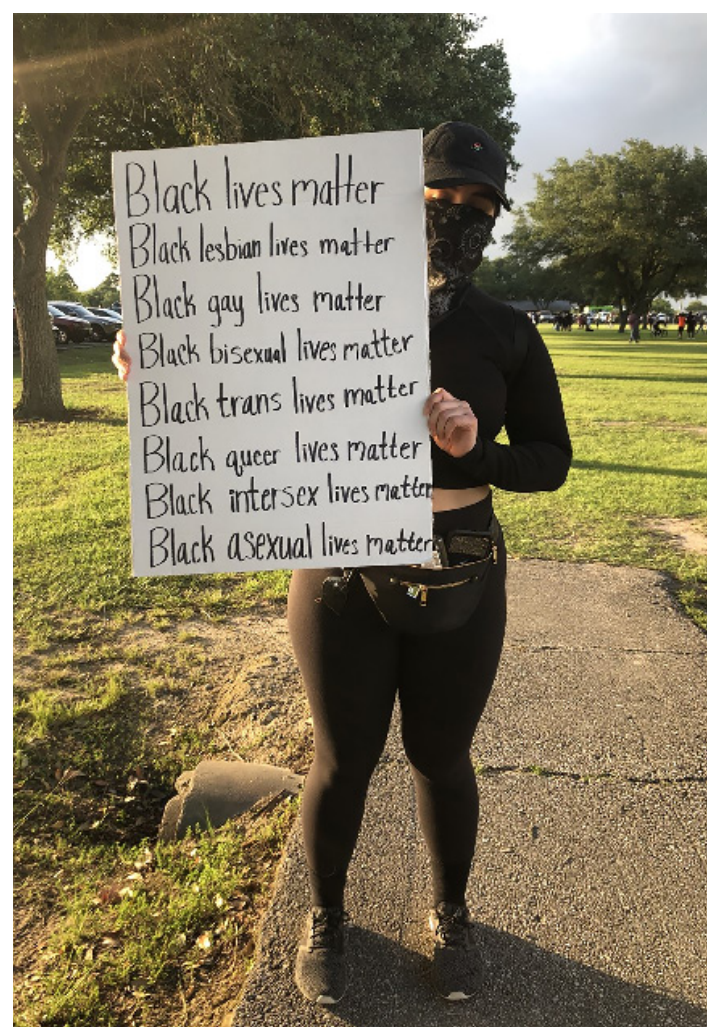 Black lives matter
Black lesbian lives matter
Black gay lives matter
Black bisexual lives matter
Black trans lives matter
Black queer lives matter
Black intersex lives matter
Black asexual lives matter